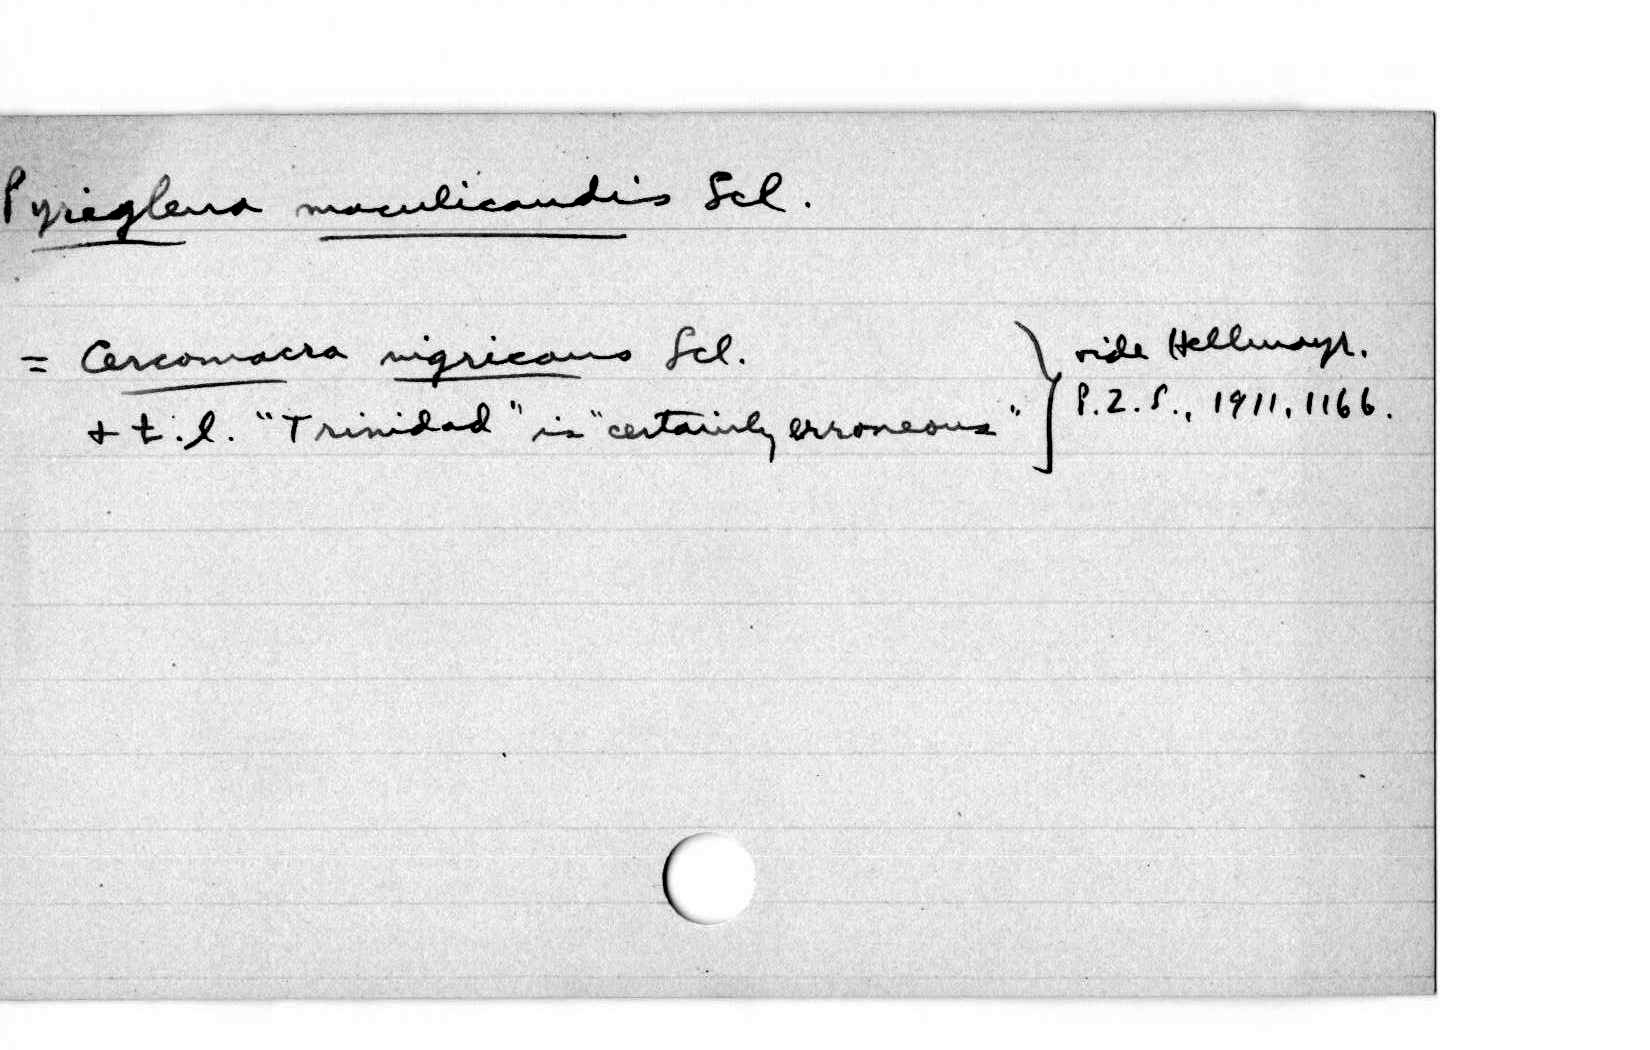 Pyriglena maculicaudis Scl.
= Cercomacra nigricans Scl.
+ t.l. "Trinidad" is "certainly erroneous"
vide Hellmayr.
P.Z.S., 1911, 1166.